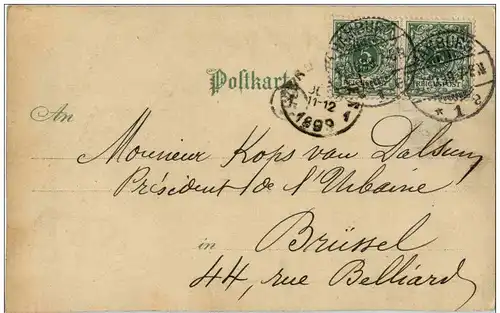 HAMBURG
HAMBURG
Postkarte
11-12
1899
1
* 1 c
An
Monsieur Kops van Dalsum
Président de l'Urbaine
in
Brüssel
44, rue Belliard